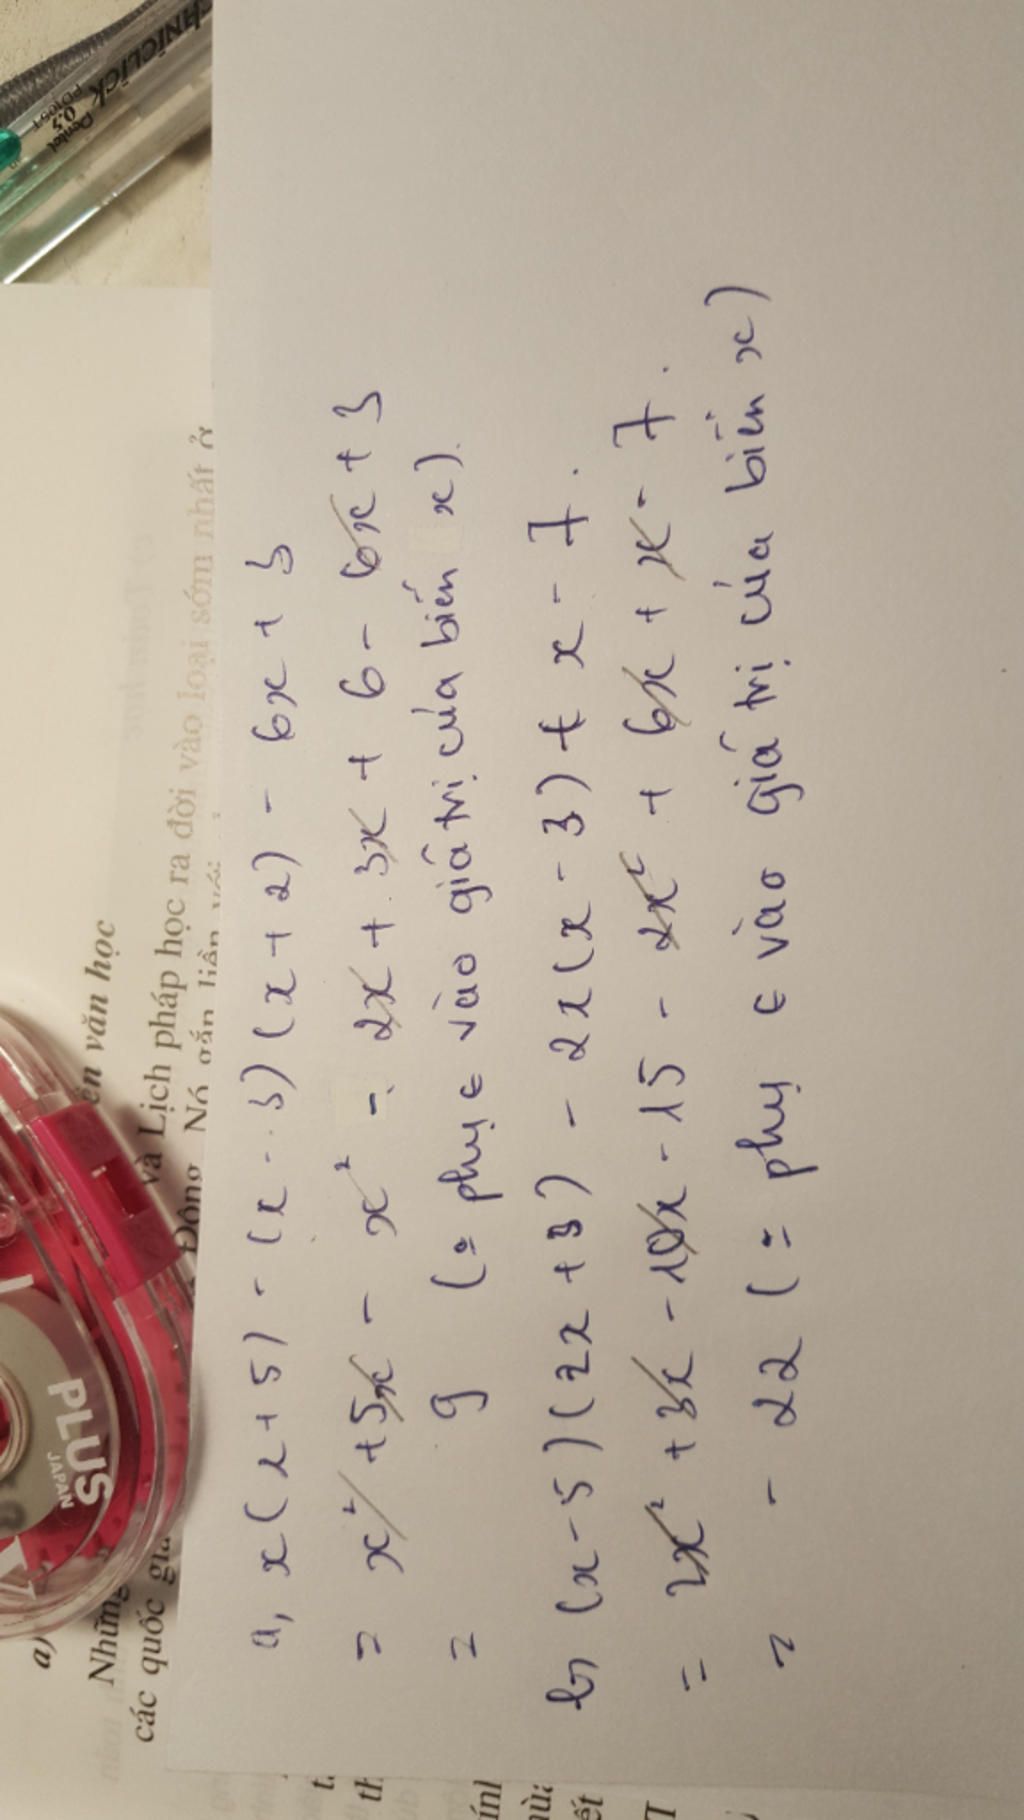 TECHNICLICK
PD105T
0.5
Pentel
PLUS
JAPAN
a)
ến văn học
Những
và Lịch pháp học ra đời vào loại sớm nhất ở
các quốc gia
Đông. Nó gắn liền với
a, x(x+5) - (x - 3)(x+2) - 6x + 3
= x² + 5x - x² - 2x + 3x + 6 - 6x + 3
= 9 (= phụ ∈ vào giá trị của biến x).
b, (x-5)(2x+3) - 2x(x-3) + x - 7.
= 2x² + 3x - 10x - 15 - 2x² + 6x + x - 7.
= - 22 (= phụ ∈ vào giá trị của biến x)